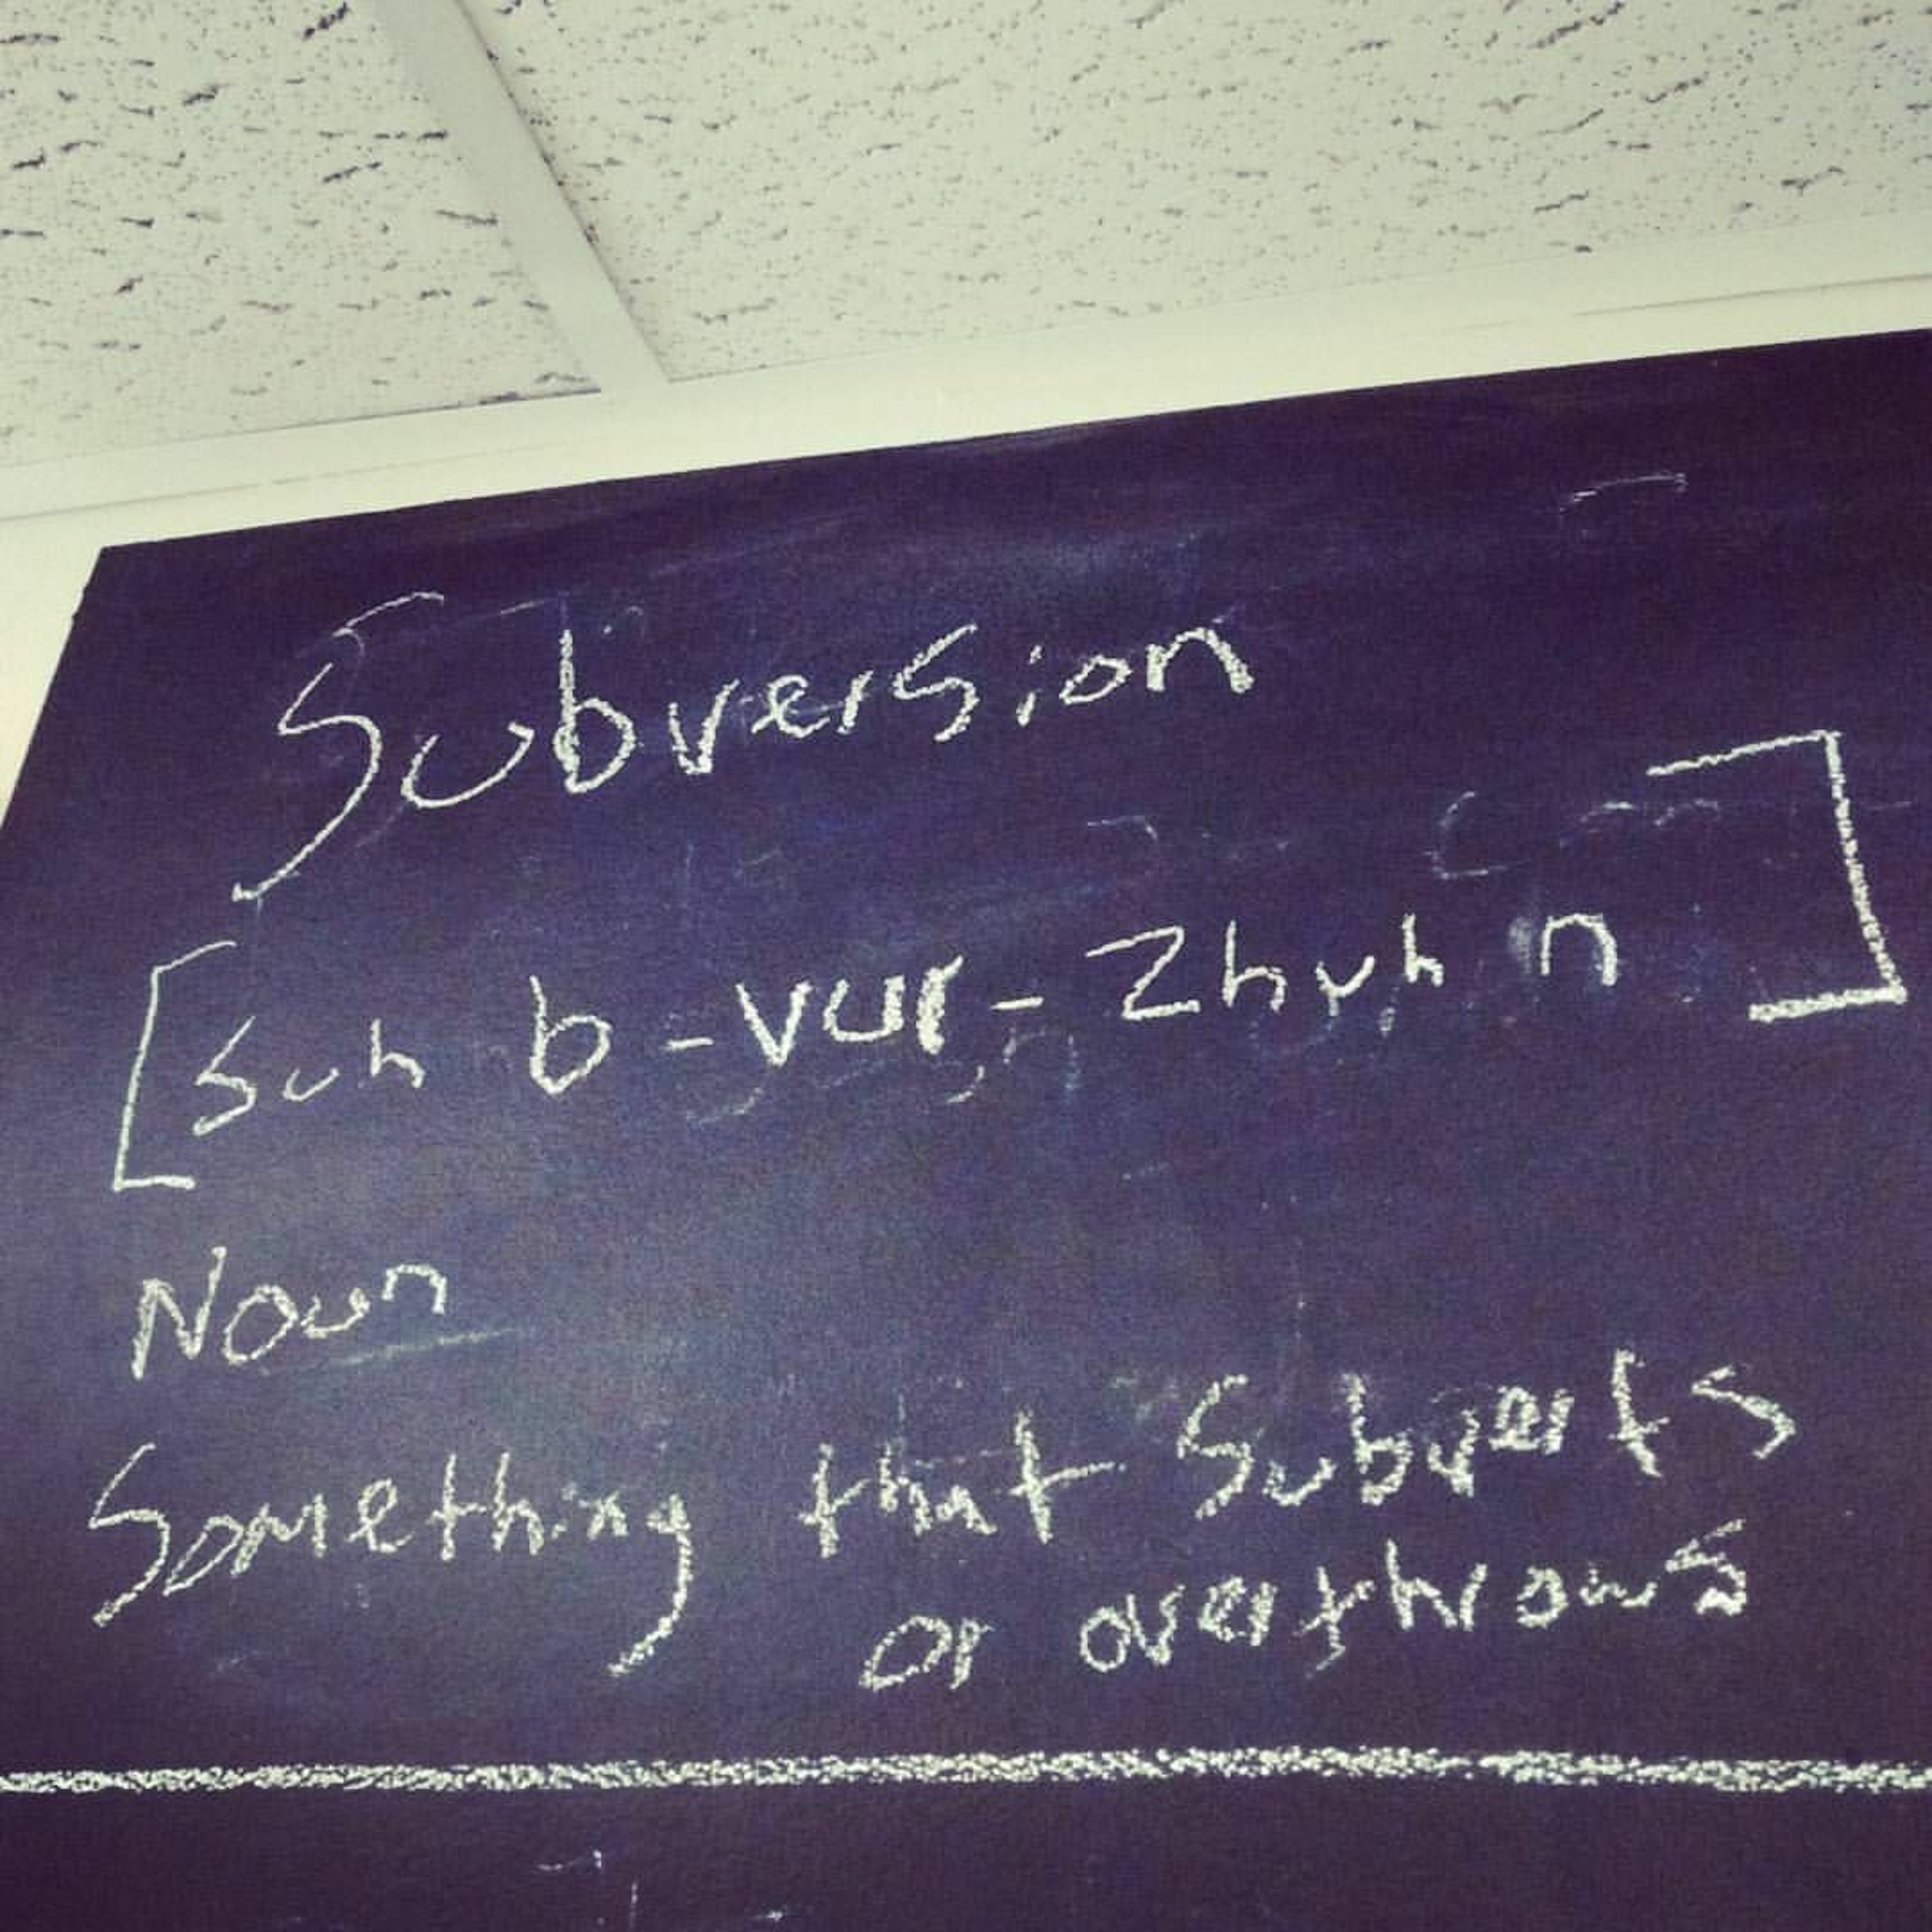 Subversion
[Suh b-vur-Zhuh n]
Noun
Something that Subverts
or overthrows